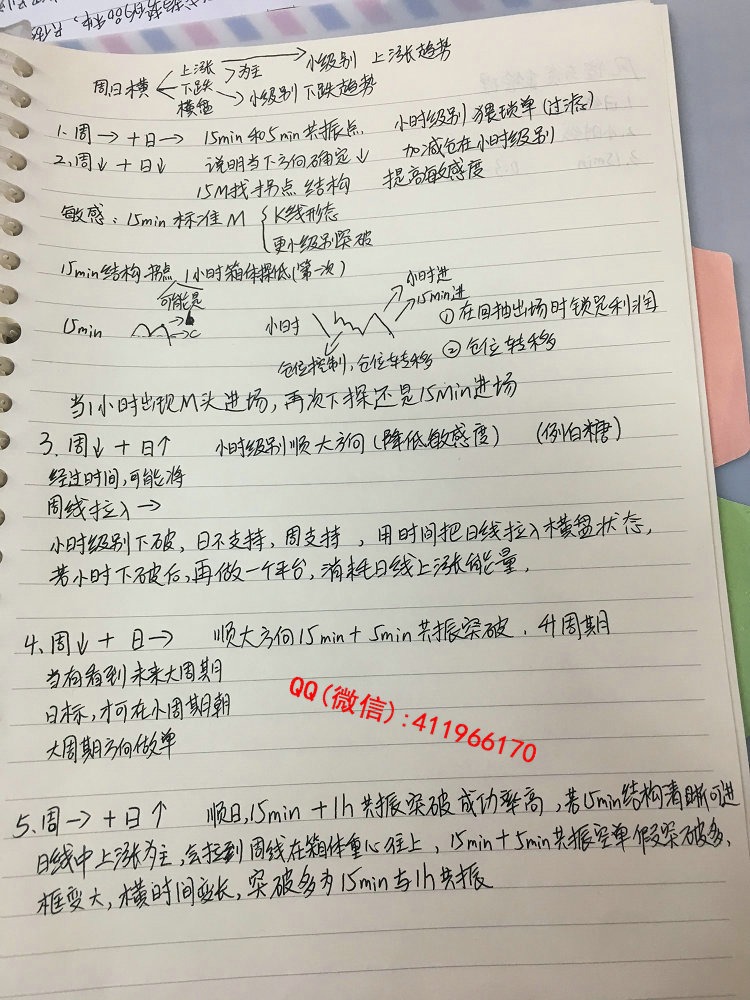 上涨 为主 小级别 上涨趋势
周日横 下跌
横盘 小级别 下跌趋势
1. 周→+日→ 15min和5min共振点. 小时级别 猥琐单(过滤)
2. 周↓+日↓ 说明当下方向确定↓ 加减仓在小时级别
15M找拐点 结构 提高敏感度
敏感: 15min 标准 M K线形态
更小级别突破
15min结构拐点 1小时箱体探低(第一次)
可能是
小时进
15min进
15min C 小时 ①在回抽出场时锁足利润
仓位控制,仓位转移 ②仓位转移
当1小时出现M头进场,再次下探还是15Min进场
3. 周↓+日↑ 小时级别顺大方向(降低敏感度) (例白糖)
经过时间,可能将
周线拉入→
小时级别下破,日不支持,周支持,用时间把日线拉入横盘状态,
若小时下破后,再做一个平台,消耗日线上涨能量.
4. 周↓+日→ 顺大方向15min+5min共振突破.升周期
当有看到未来大周期
目标,才可在小周期朝
大周期方向做单
QQ(微信):411966170
5. 周→+日↑ 顺日,15min+1h共振突破成功率高,若15min结构清晰可进
日线中上涨为主,会拉到周线在箱体重心往上,15min+5min共振空单假突破多,
框变大,横时间变长,突破多为15min与1h共振